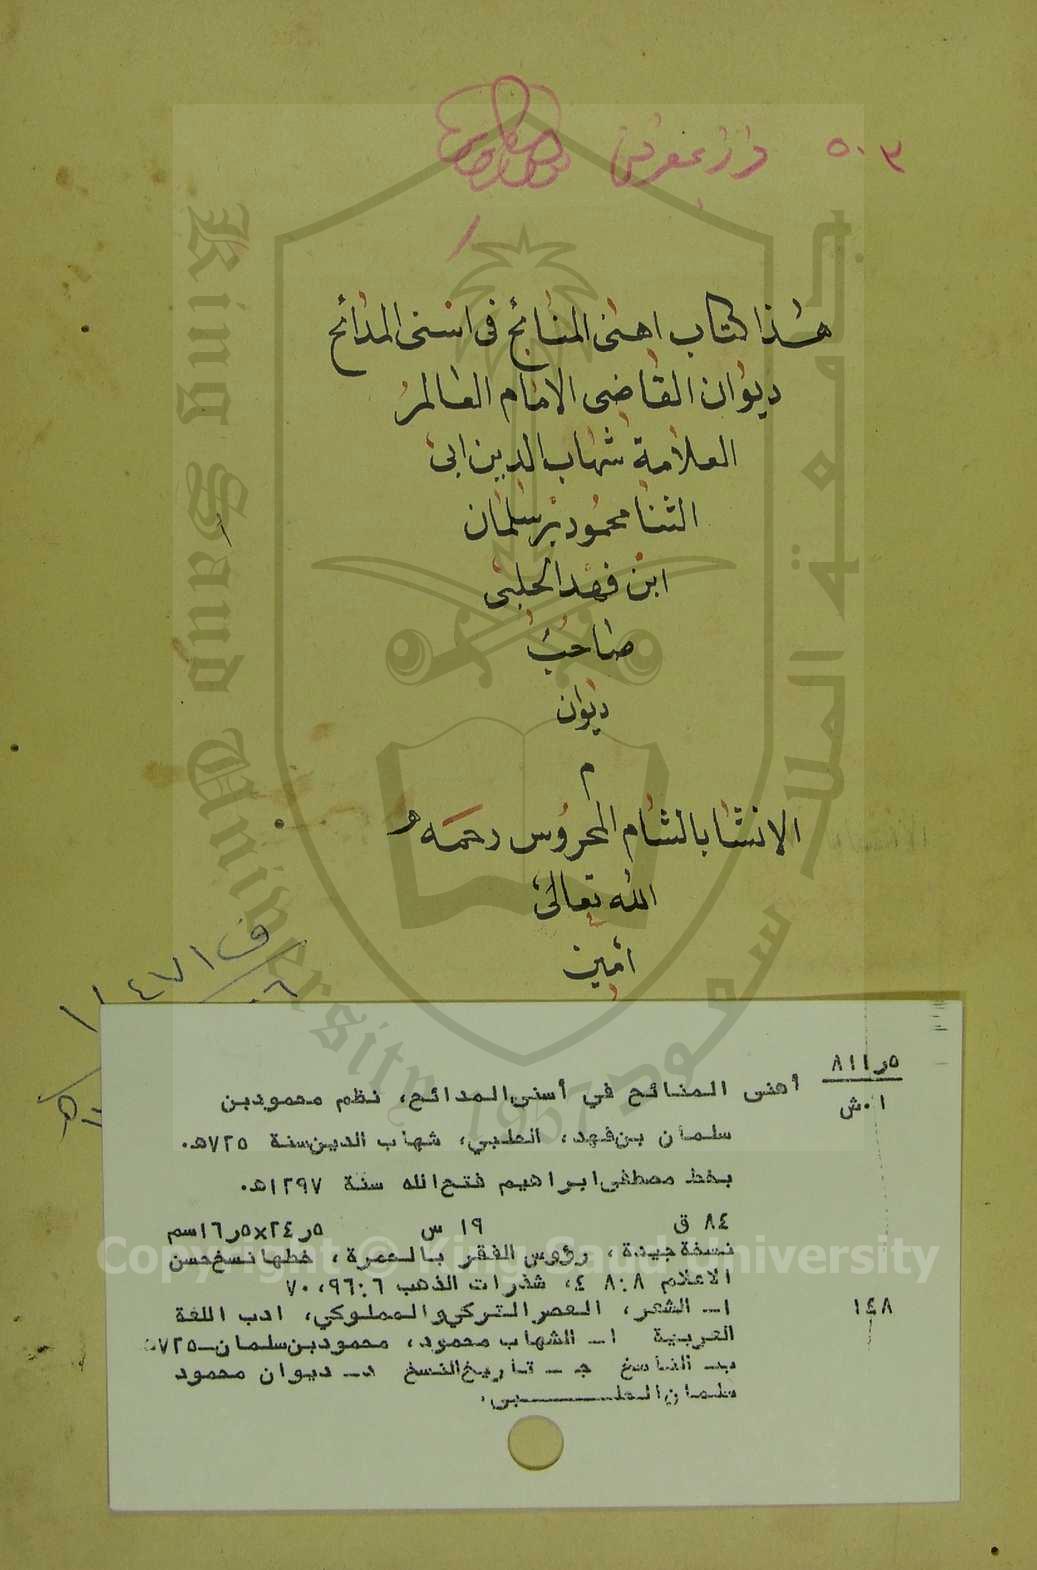 ٥٠٣
هذا كتاب اهنى المنائح فى اسنى المدائح
ديوان القاضى الامام العالم
العلامة شهاب الدين ابى
الثنا محمود بن سلمان
ابن فهد الحلبى
صاحب
ديوان
م
الانشا بالشام المحروس رحمه
الله تعالى
امين
ف ٤٧١
٨١١٫٥
٠١ش
أهنى المنائح في أسنى المدائح، نظم محمود بن
سلمان بن فهد، الحلبي، شهاب الدين سنة ٧٢٥هـ.
بخط مصطفى ابراهيم فتح الله سنة ١٢٩٧هـ.
٨٤ ق ١٩ س ٢٤٫٥×١٦٫٥سم
نسخة جيدة، رؤوس الفقر بالحمرة، خطها نسخ حسن
الاعلام ٨:٨ ٤، شذرات الذهب ٦:٩٦، ٧٠
١٤٨
١ـ الشعر، العصر التركي والمملوكي، ادب اللغة
العربية ا ـ الشهاب محمود، محمود بن سلمان ـ ٧٢٥
ب ـ الناسخ ج ـ تاريخ النسخ د ـ ديوان محمود
سلمان الحلبي.
King Saud University
جامعة الملك سعود
1957
Copyright © King Saud University